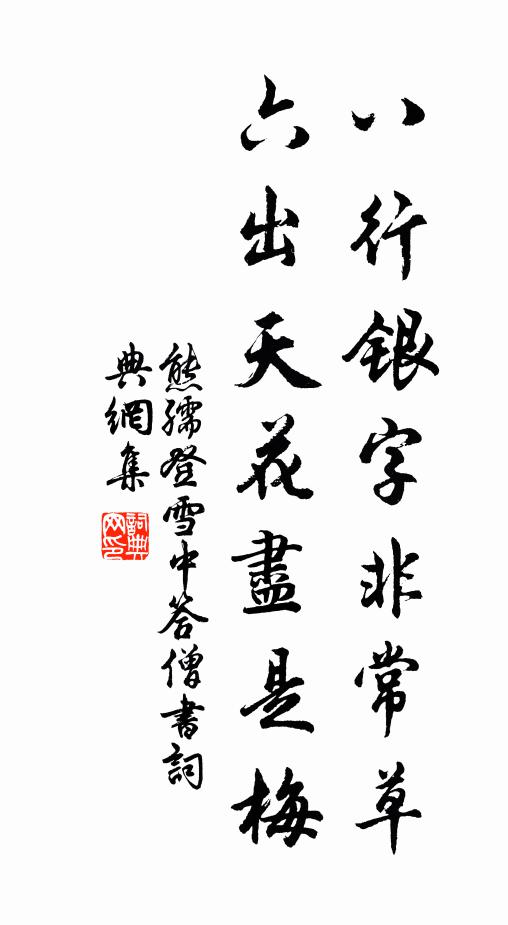 八行銀字非常草
六出天花盡是梅
熊孺登雪中答僧書詞
典網集
詞典網印